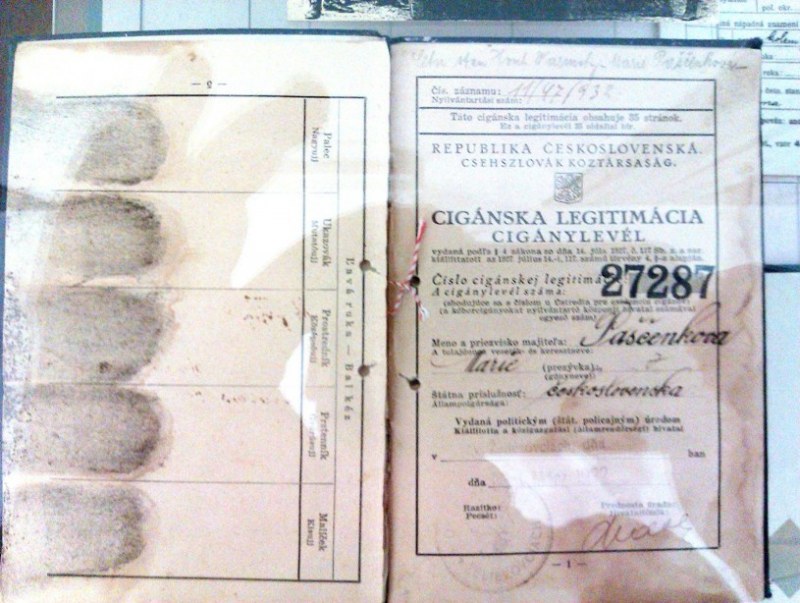 — 5 —
Palec
Nagyujj
Ukazovák
Mutatóujj
Prostredník
Középsőujj
Prstenník
Malíček
Kisujj
Ľavá ruka — Bal kéz
Marie Paščenková
Čís. záznamu: 11/47/932
Nyilvántartási szám:
Táto cigánska legitimácia obsahuje 35 stránok.
Ez a cigánylevél 35 oldalból áll.
REPUBLIKA ČESKOSLOVENSKÁ.
CSEHSZLOVÁK KÖZTÁRSASÁG.
CIGÁNSKA LEGITIMÁCIA
CIGÁNYLEVÉL
vydaná podľa § 4 zákona zo dňa 14. júla 1927, č. 117 Sb. z. a nar.
kiállíttatott az 1927 július 14.-i, 117. számú törvény 4. §-a alapján.
Číslo cigánskej legitimá 27287
A cigánylevél száma:
(shodujúce sa s číslom u Ústredia pre evidenciu cigánov)
(a kóborcigányokat nyilvántartó központi hivatal számával
egyező szám)
Meno a priezvisko majiteľa: Paščenková
A tulajdonos vezeték- és keresztneve:
Marie (prezývka)
(gúnyneve)
Štátna príslušnosť: československá
Állampolgársága:
Vydaná politickým (štát. policajným) úradom
Kiállította a közigazgatási (államrendőrségi) hivatal
v ban
dňa
Razítko:
Pecsét:
Prednosta úradu:
— 1 —
pol. okr.